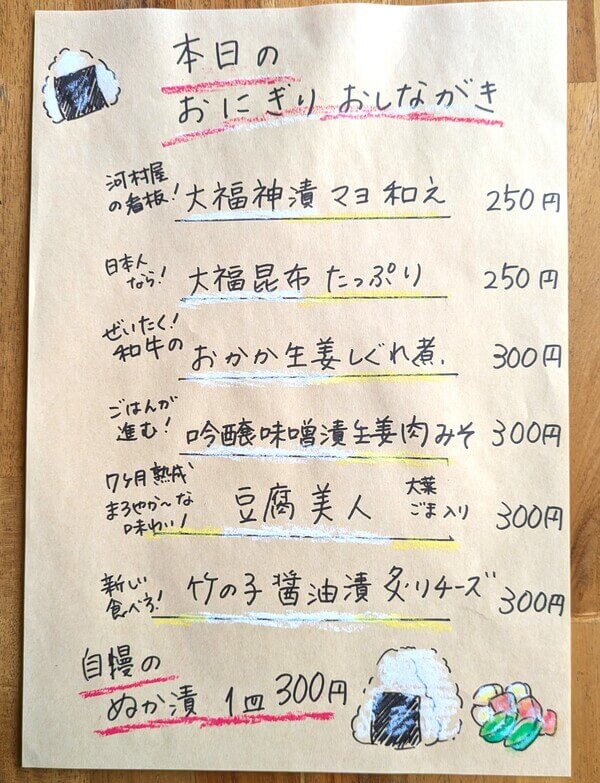 本日の
おにぎり おしながき
河村屋
の看板!
大福神漬 マヨ和え 250円
日本人
なら!
大福昆布 たっぷり 250円
ぜいたく!
和牛の
おかか生姜しぐれ煮. 300円
ごはんが
進む!
吟醸味噌漬生姜肉みそ 300円
7ヶ月熟成
まろやか〜な
味わい!
豆腐美人
大葉
ごま入り
300円
新しい
食べ方!
竹の子醤油漬 炙りチーズ 300円
自慢の
ぬか漬 1皿 300円